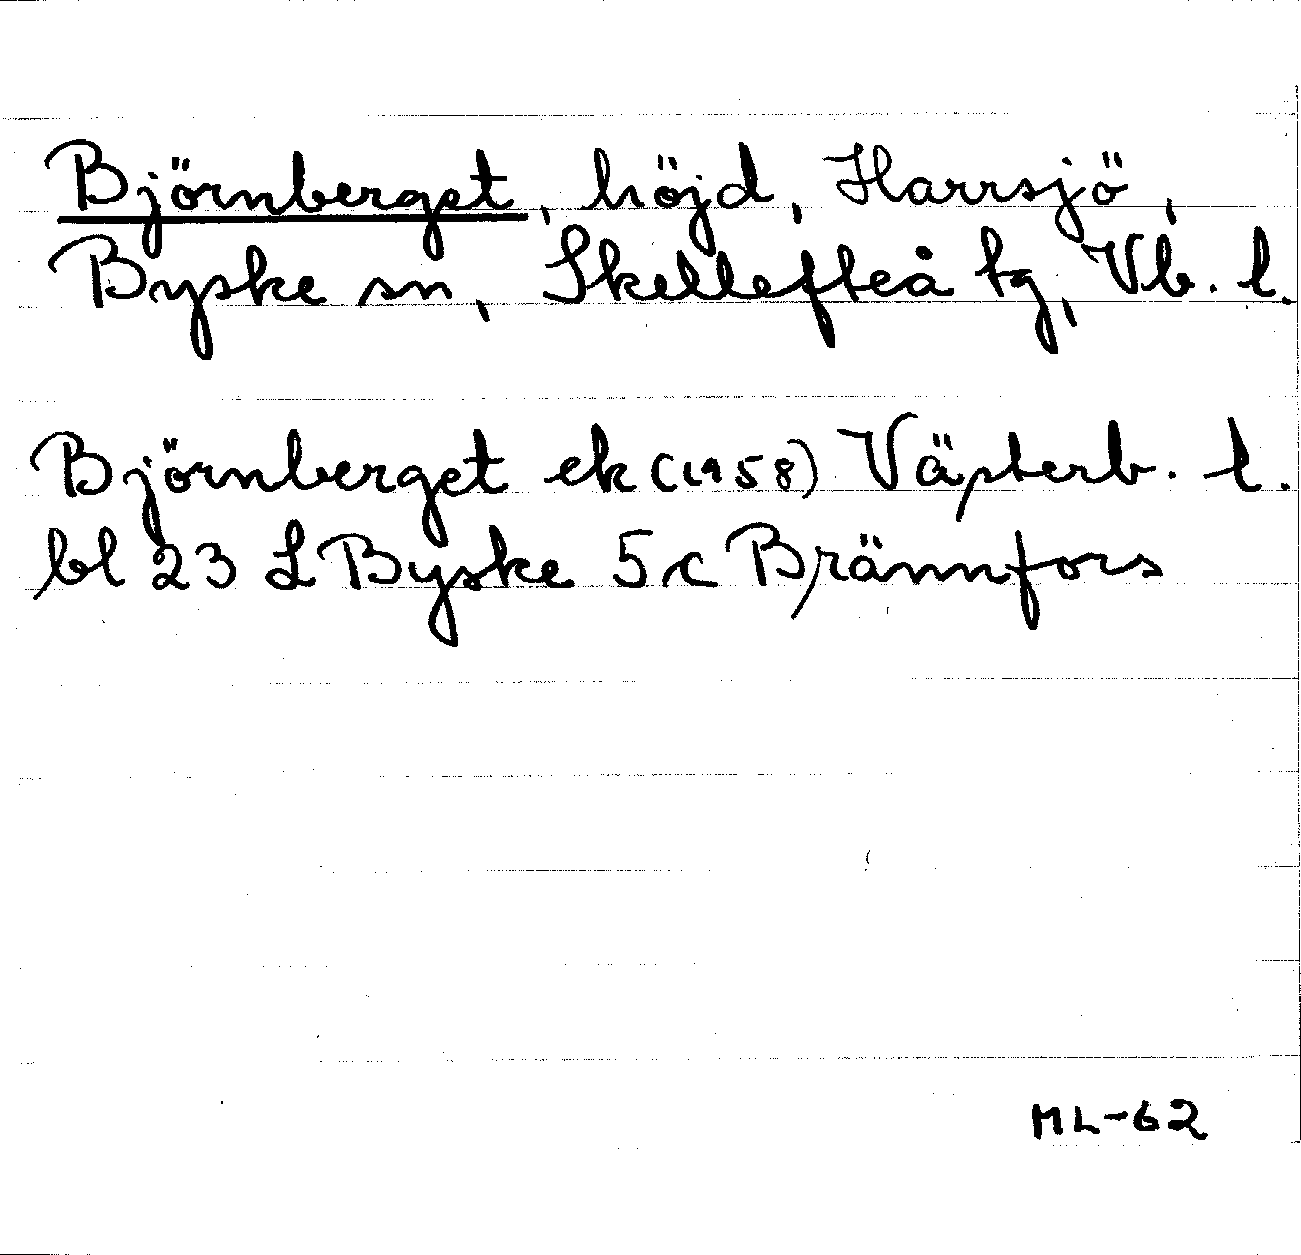 Björnberget, höjd, Harrsjö,
Byske sn, Skellefteå tg, Vb. l.
Björnberget ek (1958) Västerb. l.
bl 23 L Byske 5c Brännfors
ML-62